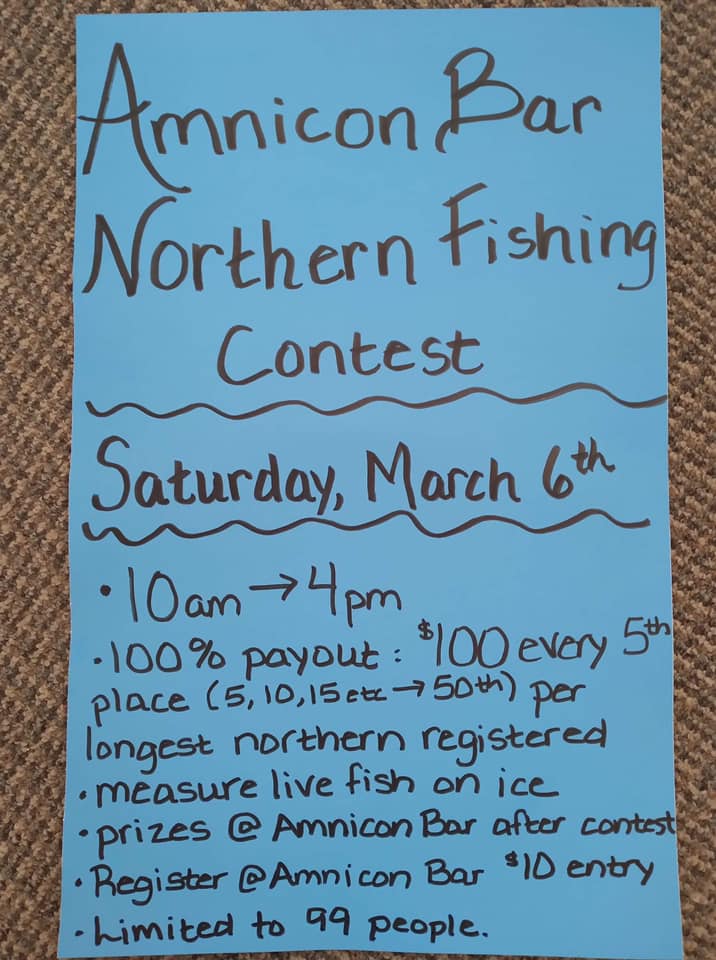 Amnicon Bar
Northern Fishing
Contest
Saturday, March 6th
• 10am → 4pm
• 100% payout: $100 every 5th
place (5, 10, 15 etc → 50th) per
longest northern registered
• measure live fish on ice
• prizes @ Amnicon Bar after contest
• Register @ Amnicon Bar $10 entry
• Limited to 99 people.